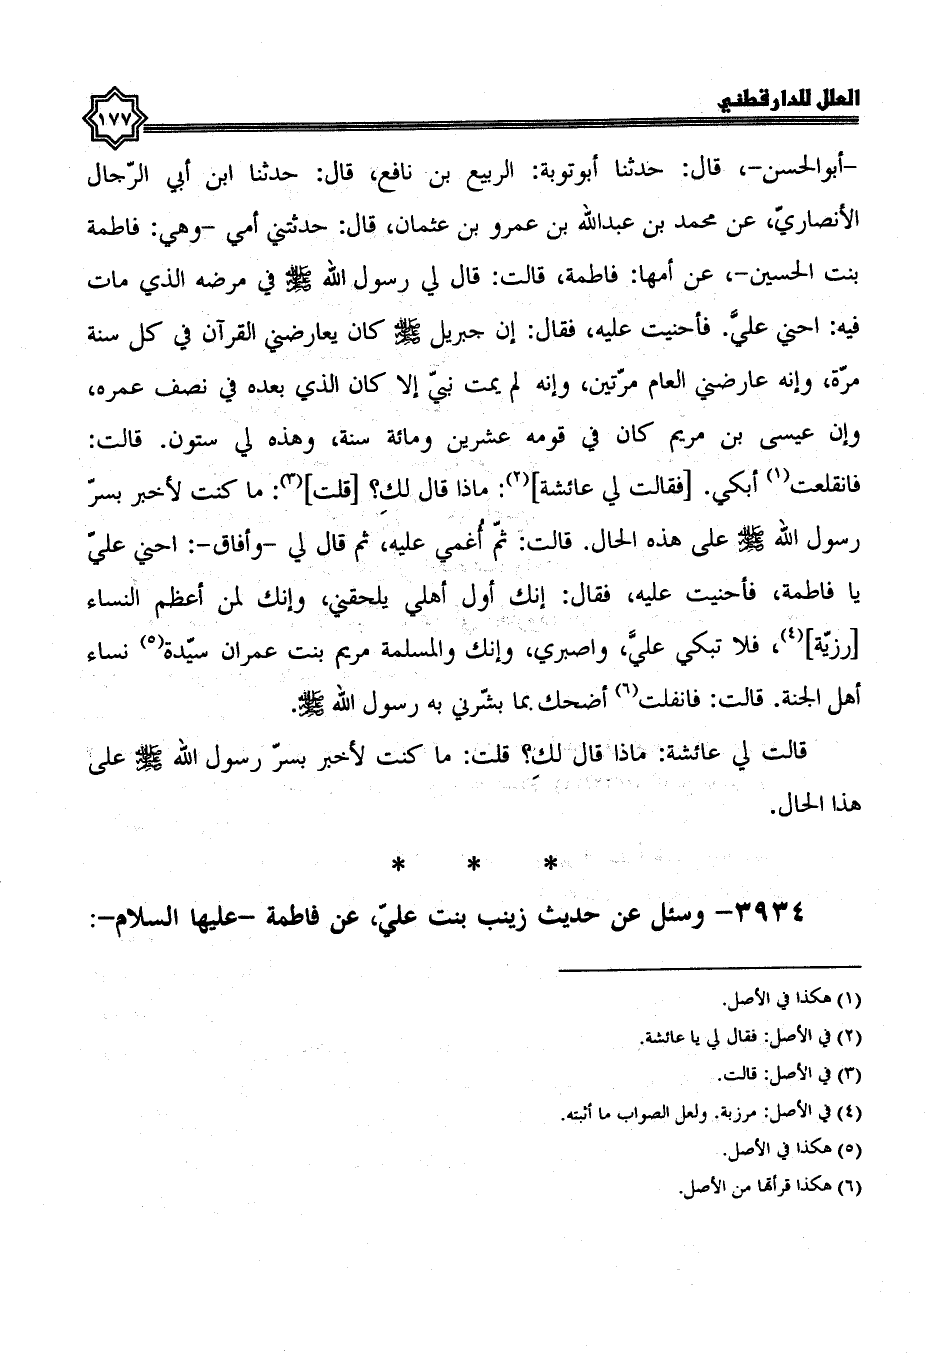 العلل للدارقطني
١٧٧
-أبوالحسن-، قال: حدثنا أبوتوبة: الربيع بن نافع، قال: حدثنا ابن أبي الرّجال
الأنصاريّ، عن محمد بن عبدالله بن عمرو بن عثمان، قال: حدثتني أمي -وهي: فاطمة
بنت الحسين-، عن أمها: فاطمة، قالت: قال لي رسول الله ﷺ في مرضه الذي مات
فيه: احني عليَّ. فأحنيت عليه، فقال: إن جبريل ﷺ كان يعارضني القرآن في كل سنة
مرّة، وإنه عارضني العام مرّتين، وإنه لم يمت نبيّ إلا كان الذي بعده في نصف عمره،
وإن عيسى بن مريم كان في قومه عشرين ومائة سنة، وهذه لي ستون. قالت:
فانقلعت(١) أبكي. [فقالت لي عائشة](٢): ماذا قال لكِ؟ [قلت](٣): ما كنت لأخبر بسرّ
رسول الله ﷺ على هذه الحال. قالت: ثمّ أُغمي عليه، ثم قال لي -وأفاق-: احني عليّ
يا فاطمة، فأحنيت عليه، فقال: إنك أول أهلي يلحقني، وإنك لمن أعظم النساء
[رزيّة](٤)، فلا تبكي عليَّ، واصبري، وإنك والمسلمة مريم بنت عمران سيّدة(٥) نساء
أهل الجنة. قالت: فانفلت(٦) أضحك بما بشّرني به رسول الله ﷺ.
قالت لي عائشة: ماذا قال لكِ؟ قلت: ما كنت لأخبر بسرّ رسول الله ﷺ على
هذا الحال.
* * *
٣٩٣٤- وسئل عن حديث زينب بنت عليّ، عن فاطمة -عليها السلام-:
(١) هكذا في الأصل.
(٢) في الأصل: فقال لي يا عائشة.
(٣) في الأصل: قالت.
(٤) في الأصل: مرزبة. ولعل الصواب ما أثبته.
(٥) هكذا في الأصل.
(٦) هكذا قرأتها من الأصل.